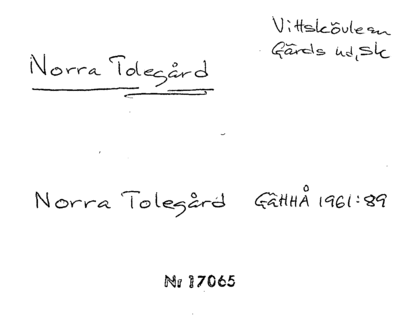 Vittskövle sn
Gärds hd, Sk
Norra Tolegård
Norra Tolegård GäHHÅ 1961:89
Nr 17065